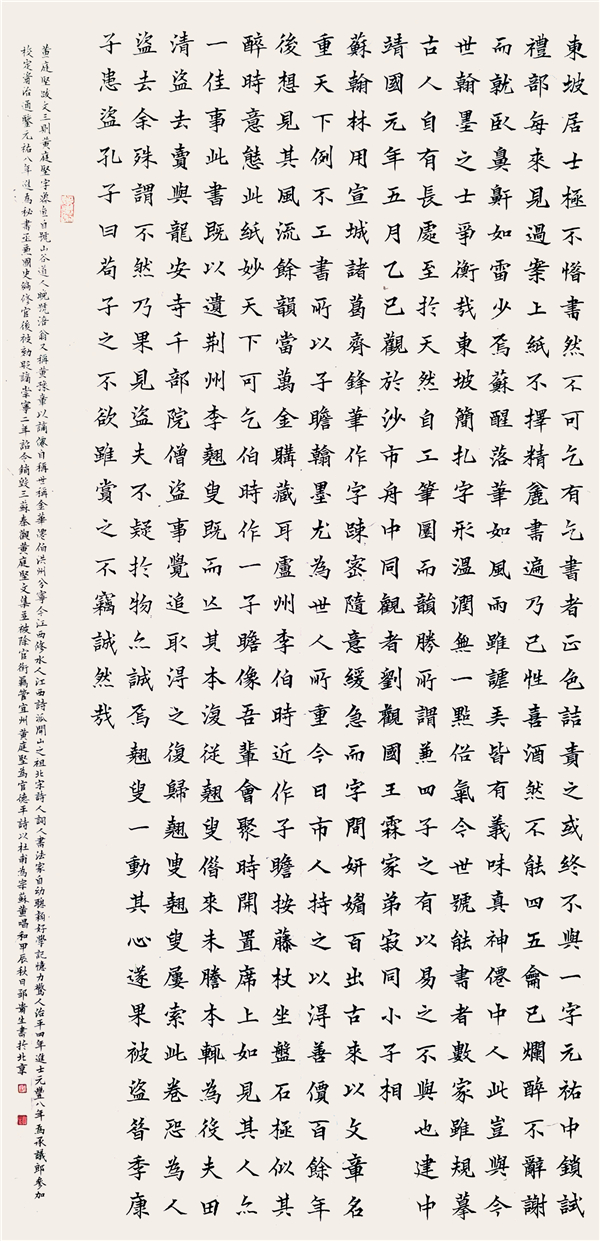 東坡居士極不惜書然不可乞有乞書者正色詰責之或終不與一字元祐中鎖試
禮部每來見過案上紙不擇精麄書遍乃已性喜酒然不能四五龠已爛醉不辭謝
而就臥鼻鼾如雷少焉蘇醒落筆如風雨雖謔弄皆有義味真神僊中人此豈與今
世翰墨之士爭衡哉東坡簡扎字形溫潤無一點俗氣今世號能書者數家雖規摹
古人自有長處至於天然自工筆圜而韻勝所謂兼四子之有以易之不與也建中
靖國元年五月乙巳觀於沙市舟中同觀者劉觀國王霖家弟寂同小子相
蘇翰林用宣城諸葛齊鋒筆作字踈密隨意緩急而字間妍媚百出古來以文章名
重天下例不工書所以子瞻翰墨尤為世人所重今日市人持之以得善價百餘年
後想見其風流餘韻當萬金購藏耳盧州李伯時近作子瞻按藤杖坐盤石極似其
醉時意態此紙妙天下可乞伯時作一子瞻像吾輩會聚時開置席上如見其人亦
一佳事此書既以遺荆州李翹叟既而亡其本復從翹叟借來未謄本輒為役夫田
清盜去賣與龍安寺千部院僧盜事覺追取得之復歸翹叟翹叟屢索此卷恐為人
盜去余殊謂不然乃果見盜夫不疑於物亦誠焉翹叟一動其心遂果被盜昝季康
子患盜孔子曰苟子之不欲雖賞之不竊誠然哉
黃庭堅跋文三則黃庭堅字魯直自號山谷道人晚號涪翁又稱黃豫章以謫僊自稱世稱金華僊伯洪州分寧今江西修水人江西詩派開山之祖北宋詩人詞人書法家自幼聰穎好學記憶力驚人治平四年進士元豐八年為承議郎參加
校定資治通鑒元祐八年進為秘書丞兼國史編修官後被劾貶謫崇寧二年詔令銷毀三蘇秦觀黃庭堅文集並被除官銜羈管宜州黃庭堅為官德平詩以杜甫為宗蘇黃唱和甲辰秋日郭貴生書於北京